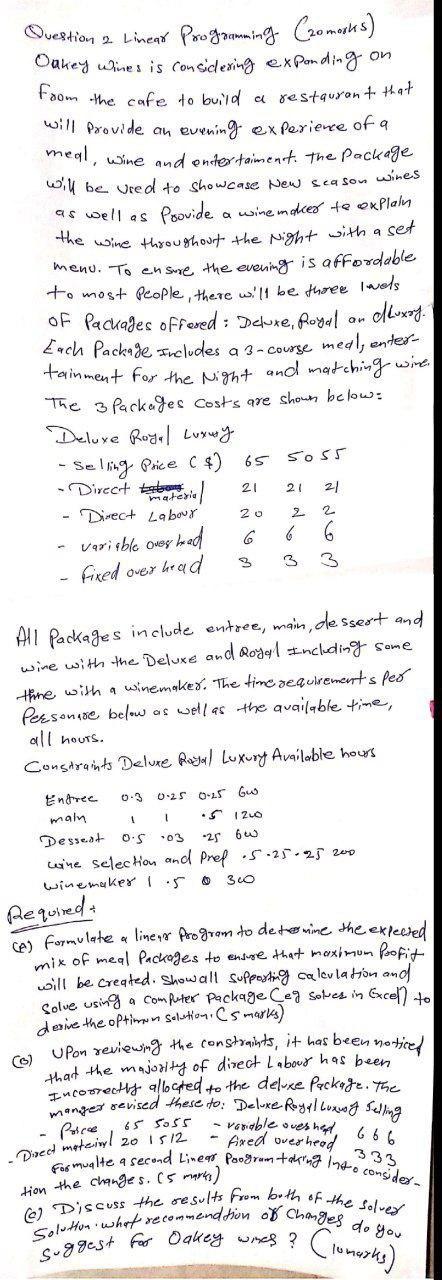 Question 2 Linear Programming. (20 marks)
Oakey Wines is considering expanding on
from the cafe to build a restaurant that
will provide an evening experience of a
meal, wine and entertaiment. The Package
will be used to showcase New season wines
as well as Provide a winemaker to explain
the wine throughout the Night with a set
menu. To ensure the evening is affordable
to most People, there will be three levels
of Packages offered: Deluxe, Royal an d Luxury.
Each Package Includes a 3-course meal, enter-
tainment for the Night and matching wine.
The 3 Packages Costs are shown below:
Deluxe Royal Luxury
- Selling Price ($) 65 50 55
- Direct material 21 21 21
- Direct Labour 20 2 2
- variable over head 6 6 6
- fixed over head 3 3 3
All Packages include entree, main, dessert and
wine with the Deluxe and Royal Including some
time with a winemaker. The time requirements Per
Person are below as well as the available time,
all hours.
Constraints Deluxe Royal Luxury Available hours
Entree 0.3 0.25 0.25 600
main 1 1 .5 1200
Dessert 0.5 .03 .25 600
wine selection and Prep .5 .25 .25 200
winemaker 1 .5 0 300
Required:
(A) Formulate a linear Program to determine the expected
mix of meal Packages to ensure that maximum Profit
will be created. Show all supporting calculation and
Solve using a computer package (eg Solver in Excel) to
derive the optimum solution. (5 marks)
(B) Upon reviewing the constraints, it has been noticed
that the majority of direct Labour has been
Incorrectly allocated to the deluxe Package. The
manger revised these to: Deluxe Royal Luxury Selling
- Price 65 50 55 - variable over head 6 6 6
- Direct material 20 15 12 - fixed overhead 3 3 3
Formualte a second Linear Program taking Into consider-
tion the changes. (5 marks)
(C) Discuss the results from both of the solver
Solution. what recommendtion of Changes do you
suggest for Oakey wines? (10 marks)